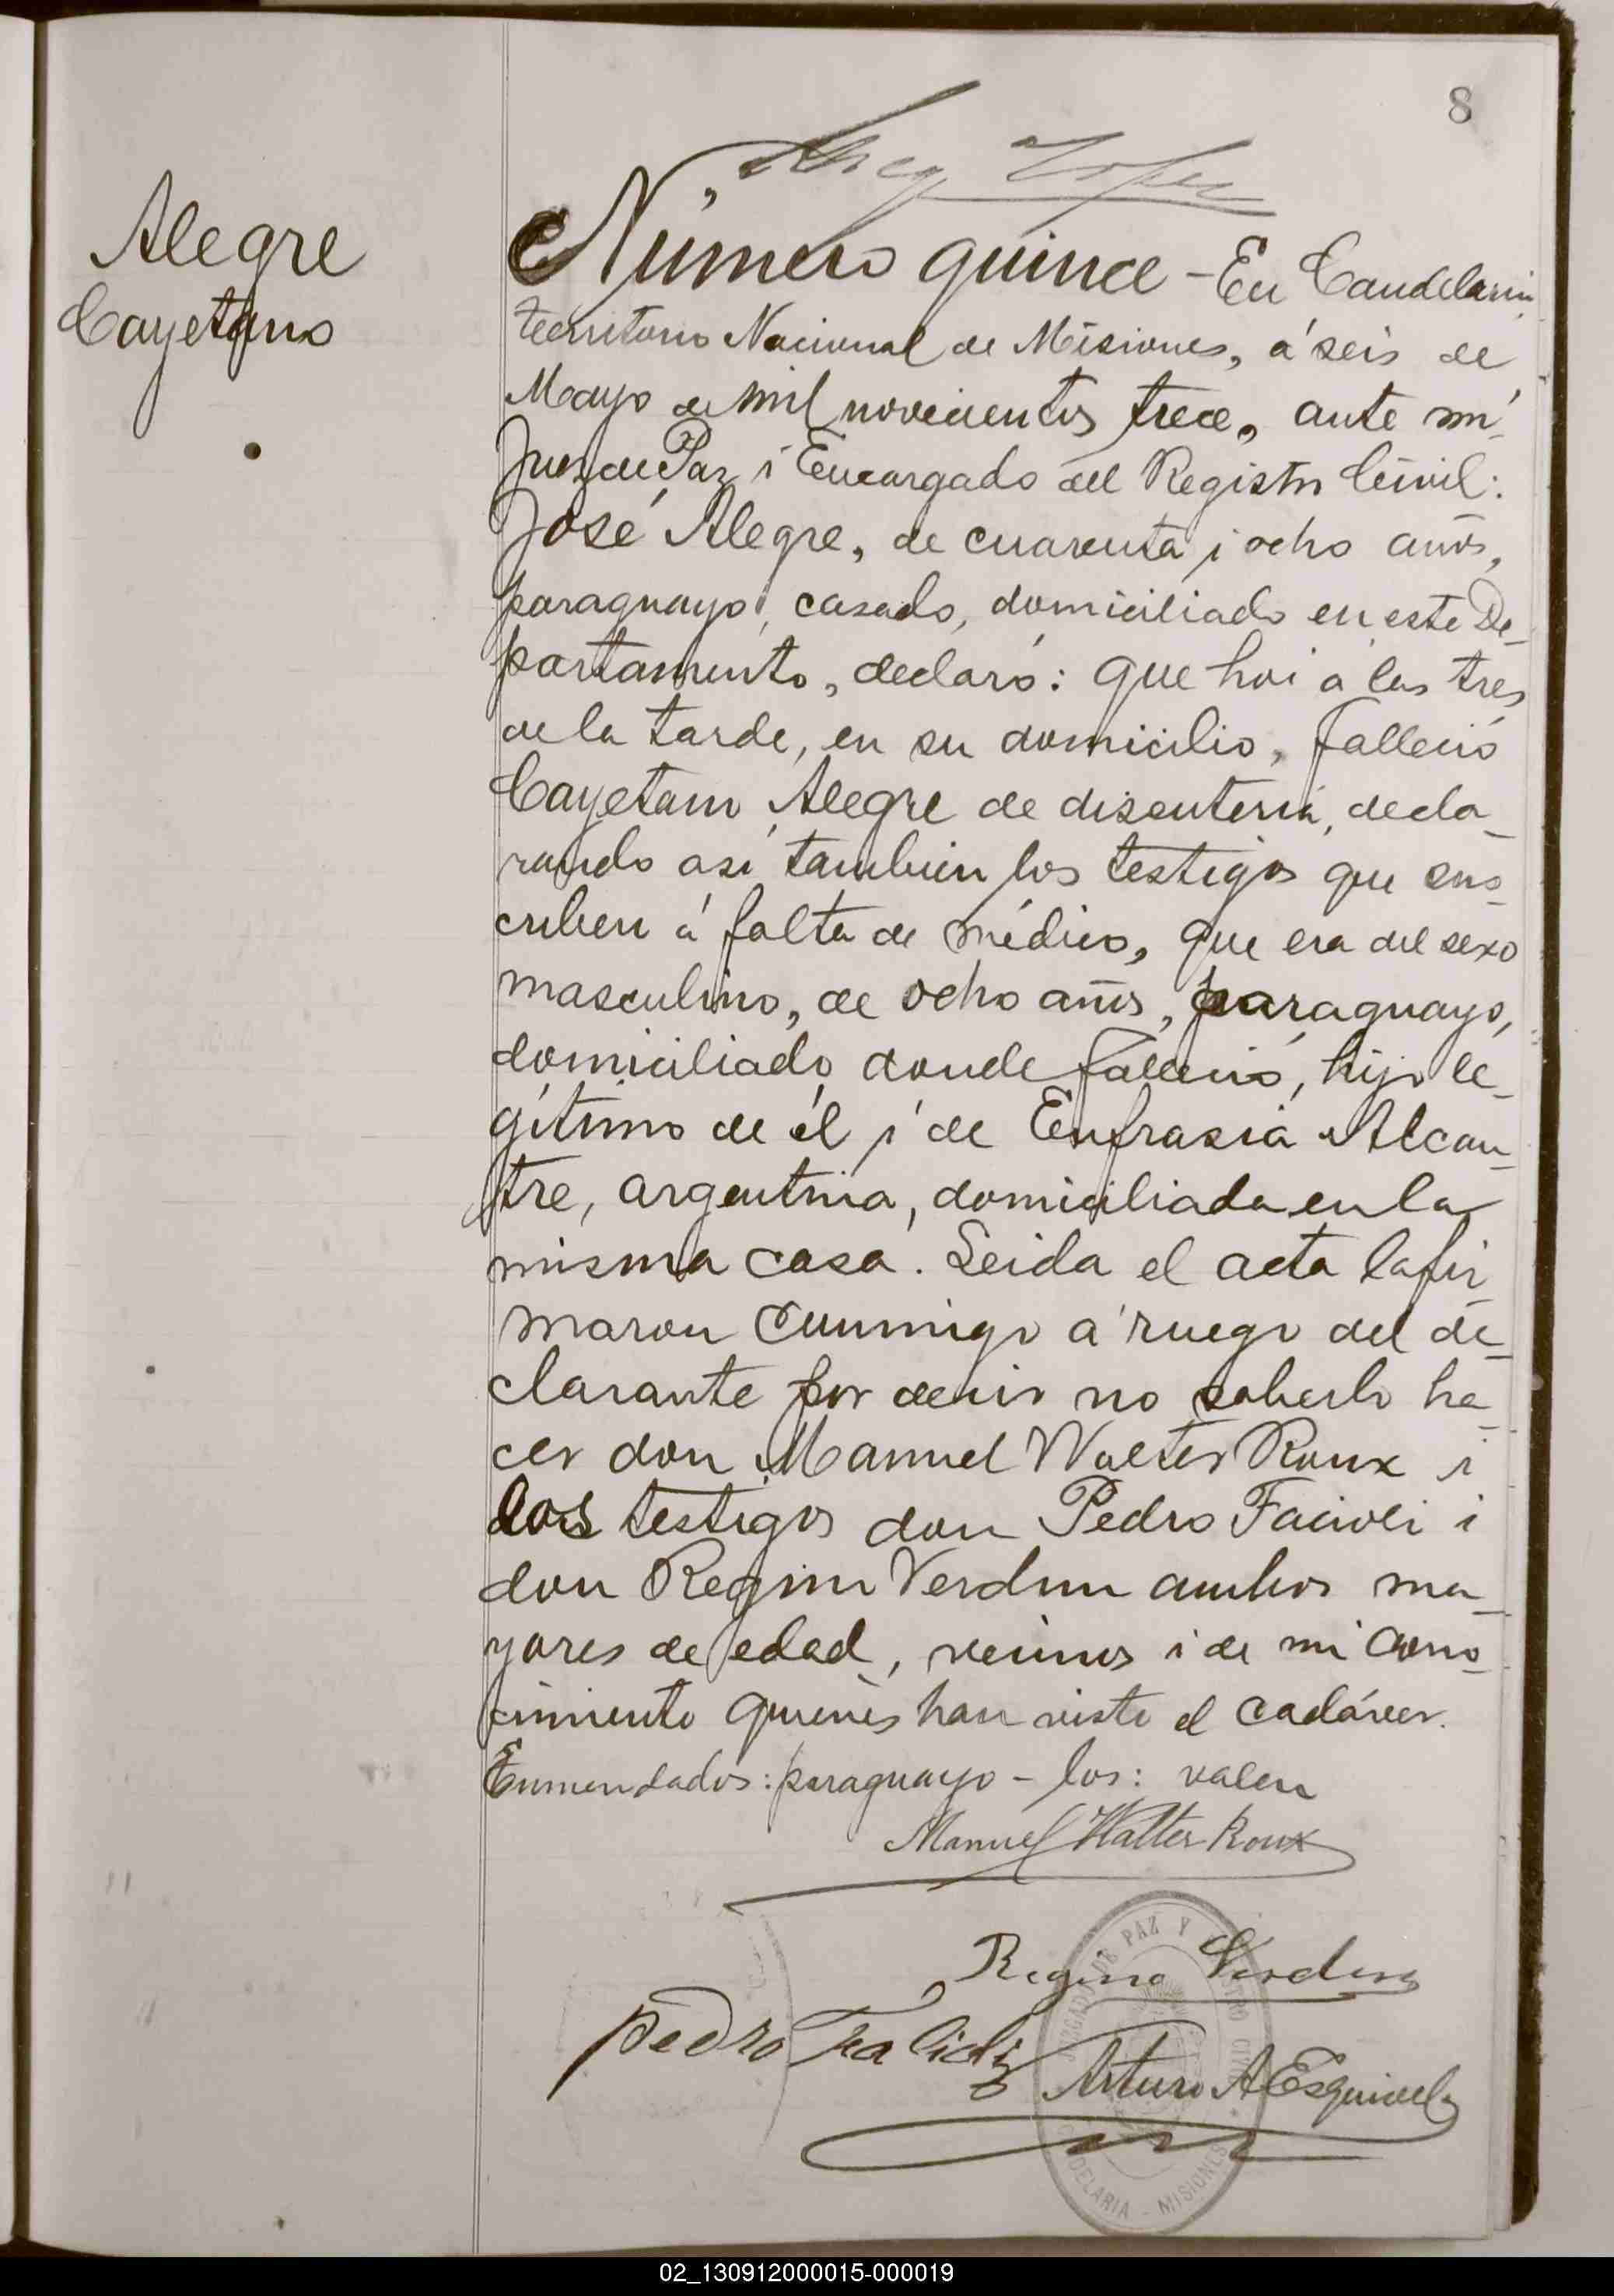 8
Alegre
Cayetano
Número quince - En Candelaria
territorio Nacional de Misiones, á seis de
Mayo de mil novecientos trece, ante mí
Juez de Paz i Encargado del Registro Civil:
José Alegre, de cuarenta i ocho años,
paraguayo, casado, domiciliado en este De_
partamento, declaró: que hoi á las tres
de la tarde, en su domicilio, falleció
Cayetano Alegre de disenteria, decla_
rando así tambien los testigos que sus_
criben á falta de médico, que era del sexo
masculino, de ocho años, paraguayo,
domiciliado donde falleció, hijo le_
gítimo de él i de Eufrasia Alcan_
tre, argentina, domiciliada en la
misma casa. Leida el acta la fir_
maron conmigo á ruego del de_
clarante por decir no saberlo ha_
cer don Manuel Walter Roux i
los testigos don Pedro Facioli i
don Regino Verdun ambos ma_
yores de edad, vecinos i de mi cono_
cimiento quienes han visto el cadáver.
Enmendados: paraguayo - los: valen
Manuel Walter Roux
Regino Verdun
Pedro
Arturo A Esquivel
JUZGADO DE PAZ Y REGISTRO CIVIL
CANDELARIA - MISIONES
02_130912000015-000019